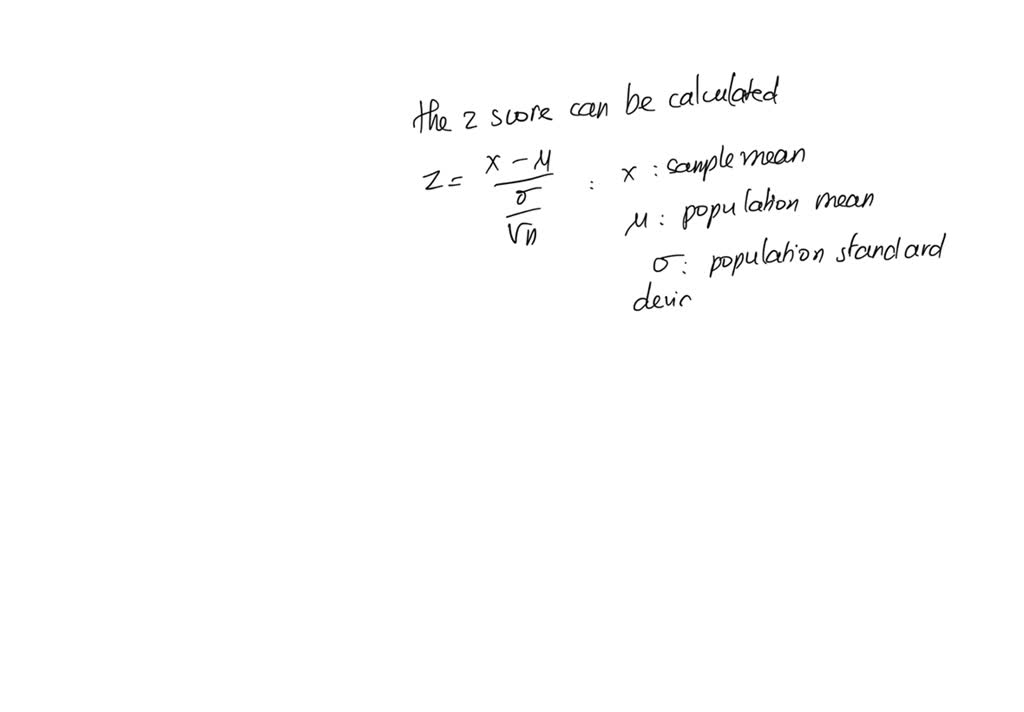 the z score can be calculated
z = (x - μ) / (σ / √n) : x : sample mean
μ : population mean
σ : population standard
devia